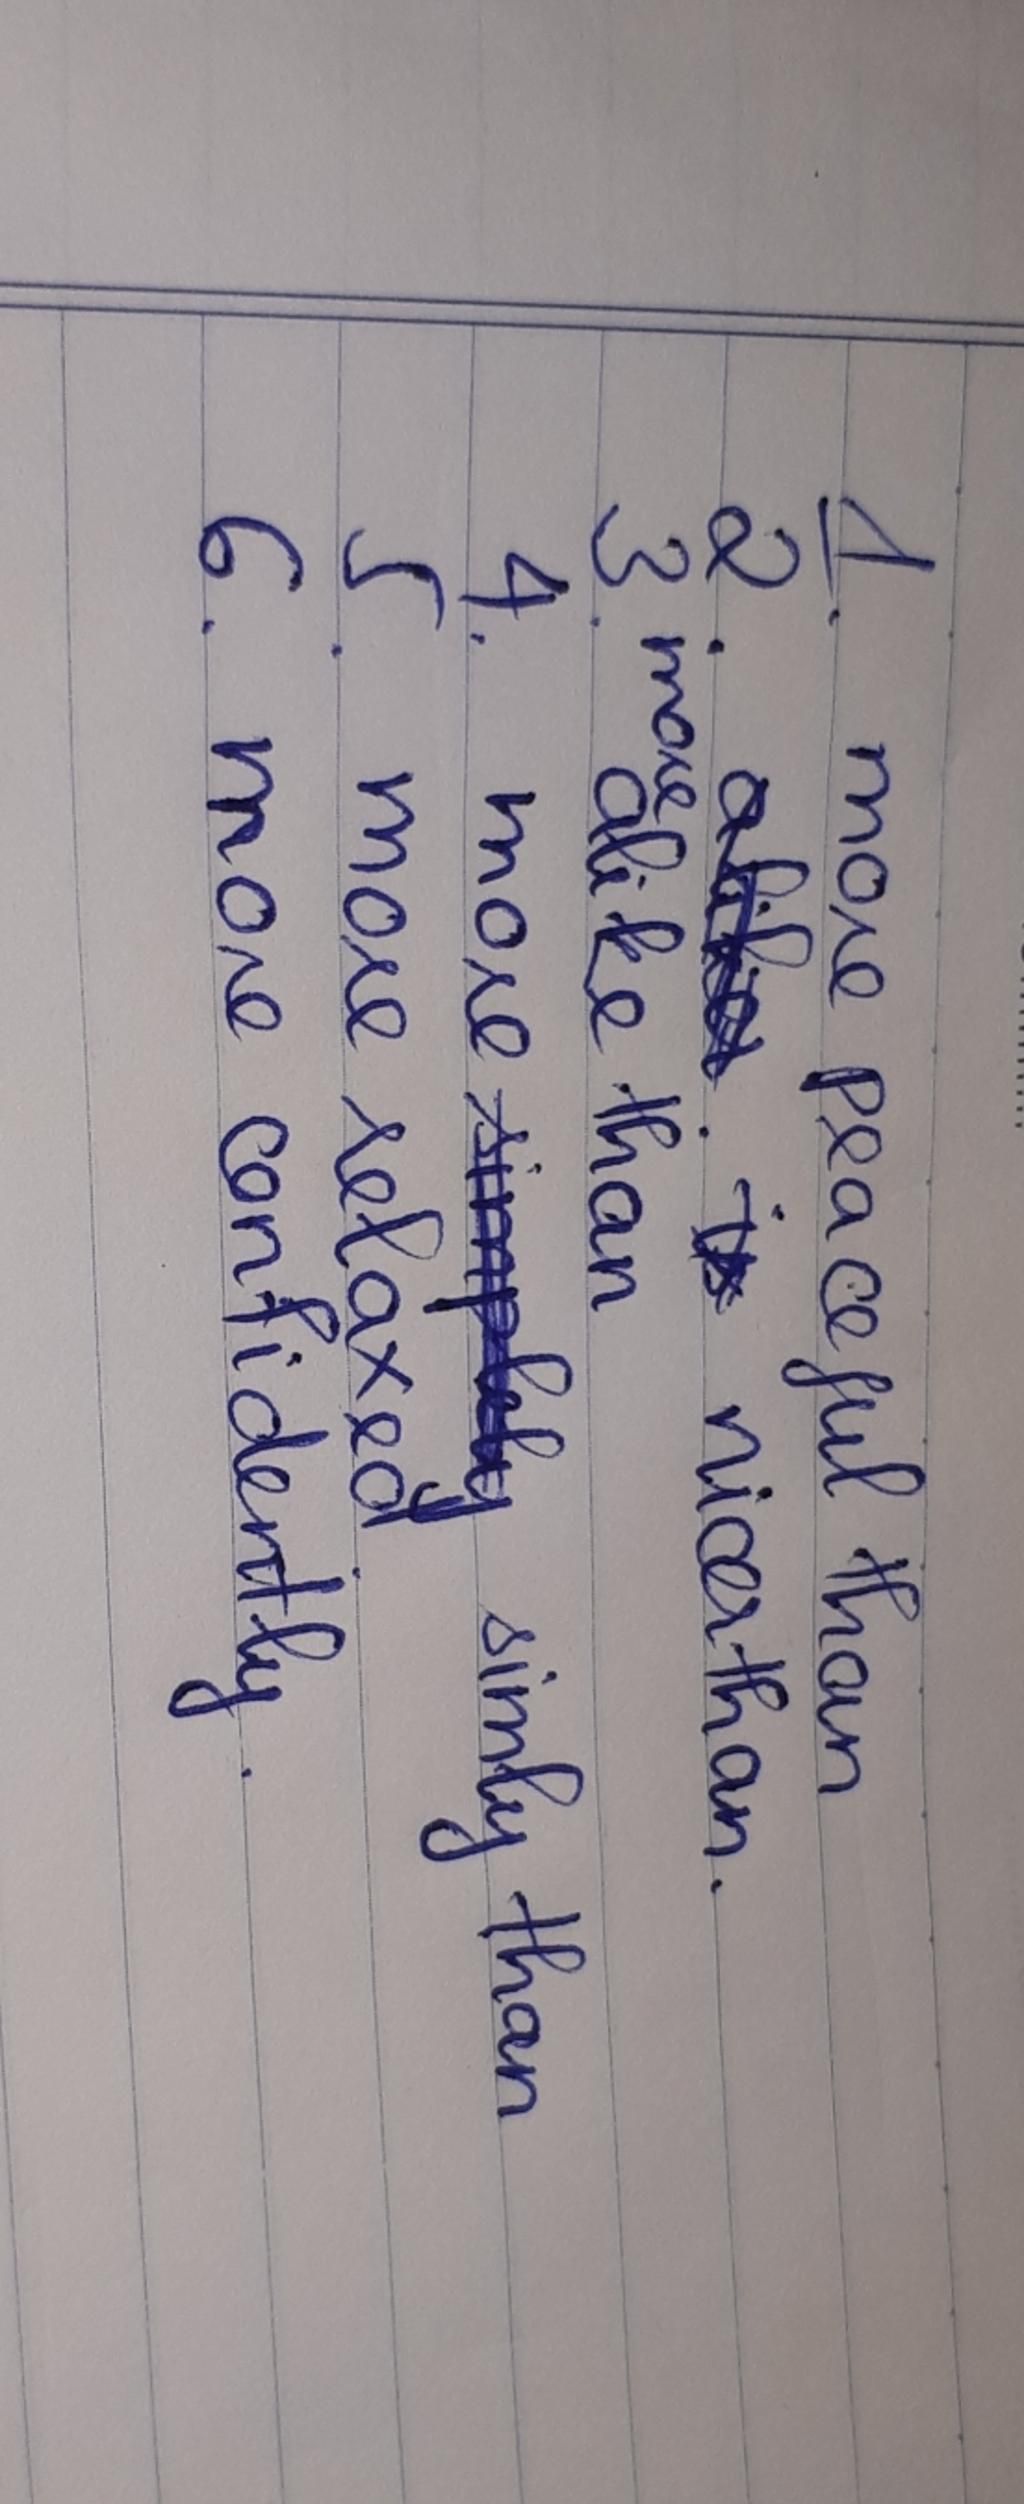 1. more peaceful than
2. nicer than.
3. more alike than
4. more simly than
5. more relaxed.
6. more confidently.